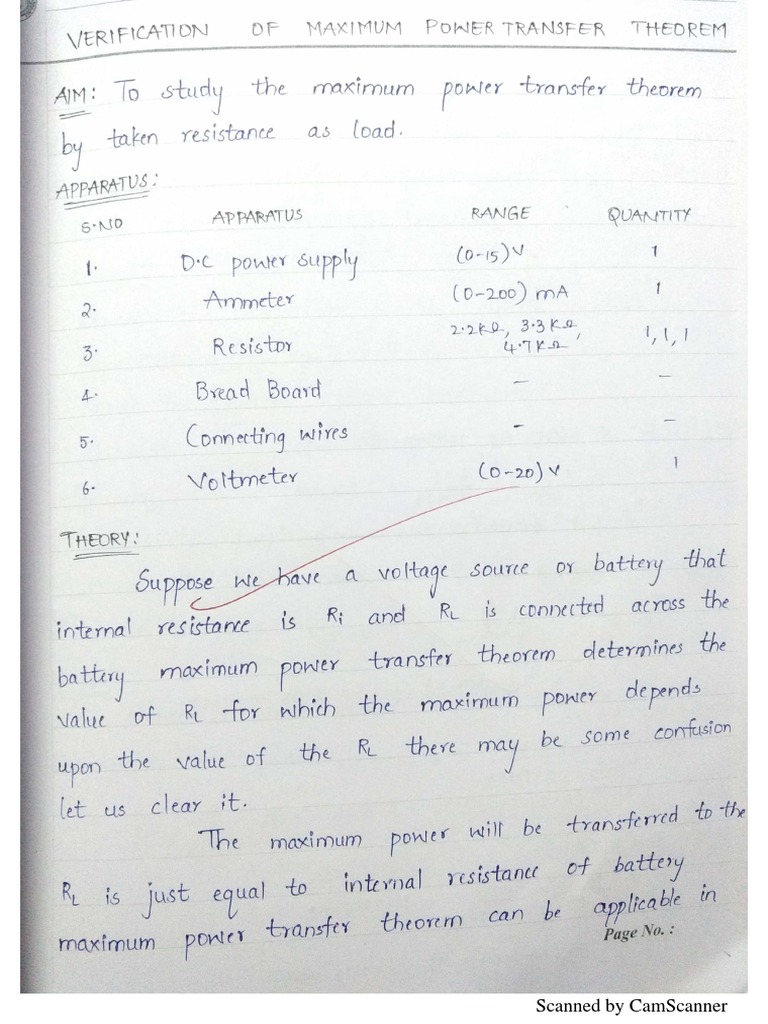 VERIFICATION OF MAXIMUM POWER TRANSFER THEOREM
AIM: To study the maximum power transfer theorem
by taken resistance as load.
APPARATUS:
S.NO APPARATUS RANGE QUANTITY
1. D.C power supply (0-15)V 1
2. Ammeter (0-200) mA 1
3. Resistor 2.2KΩ, 3.3KΩ, 4.7KΩ 1, 1, 1
4. Bread Board - -
5. Connecting wires - -
6. Voltmeter (0-20) V 1
THEORY:
Suppose we have a voltage source or battery that
internal resistance is Ri and RL is connected across the
battery maximum power transfer theorem determines the
value of RL for which the maximum power depends
upon the value of the RL there may be some confusion
let us clear it.
The maximum power will be transferred to the
RL is just equal to internal resistance of battery
maximum power transfer theorem can be applicable in
Page No. :
Scanned by CamScanner